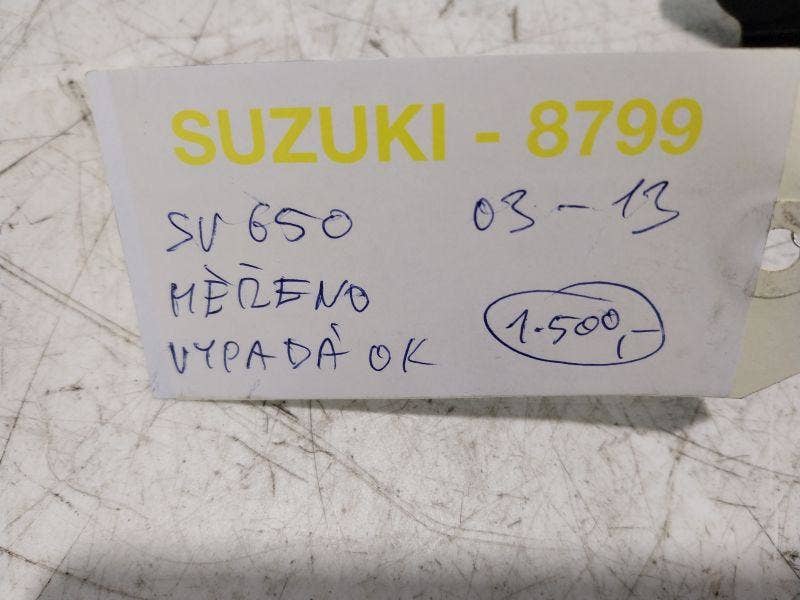 SUZUKI - 8799
SV 650 03-13
MĚŘENO
VYPADÁ OK 1.500,-